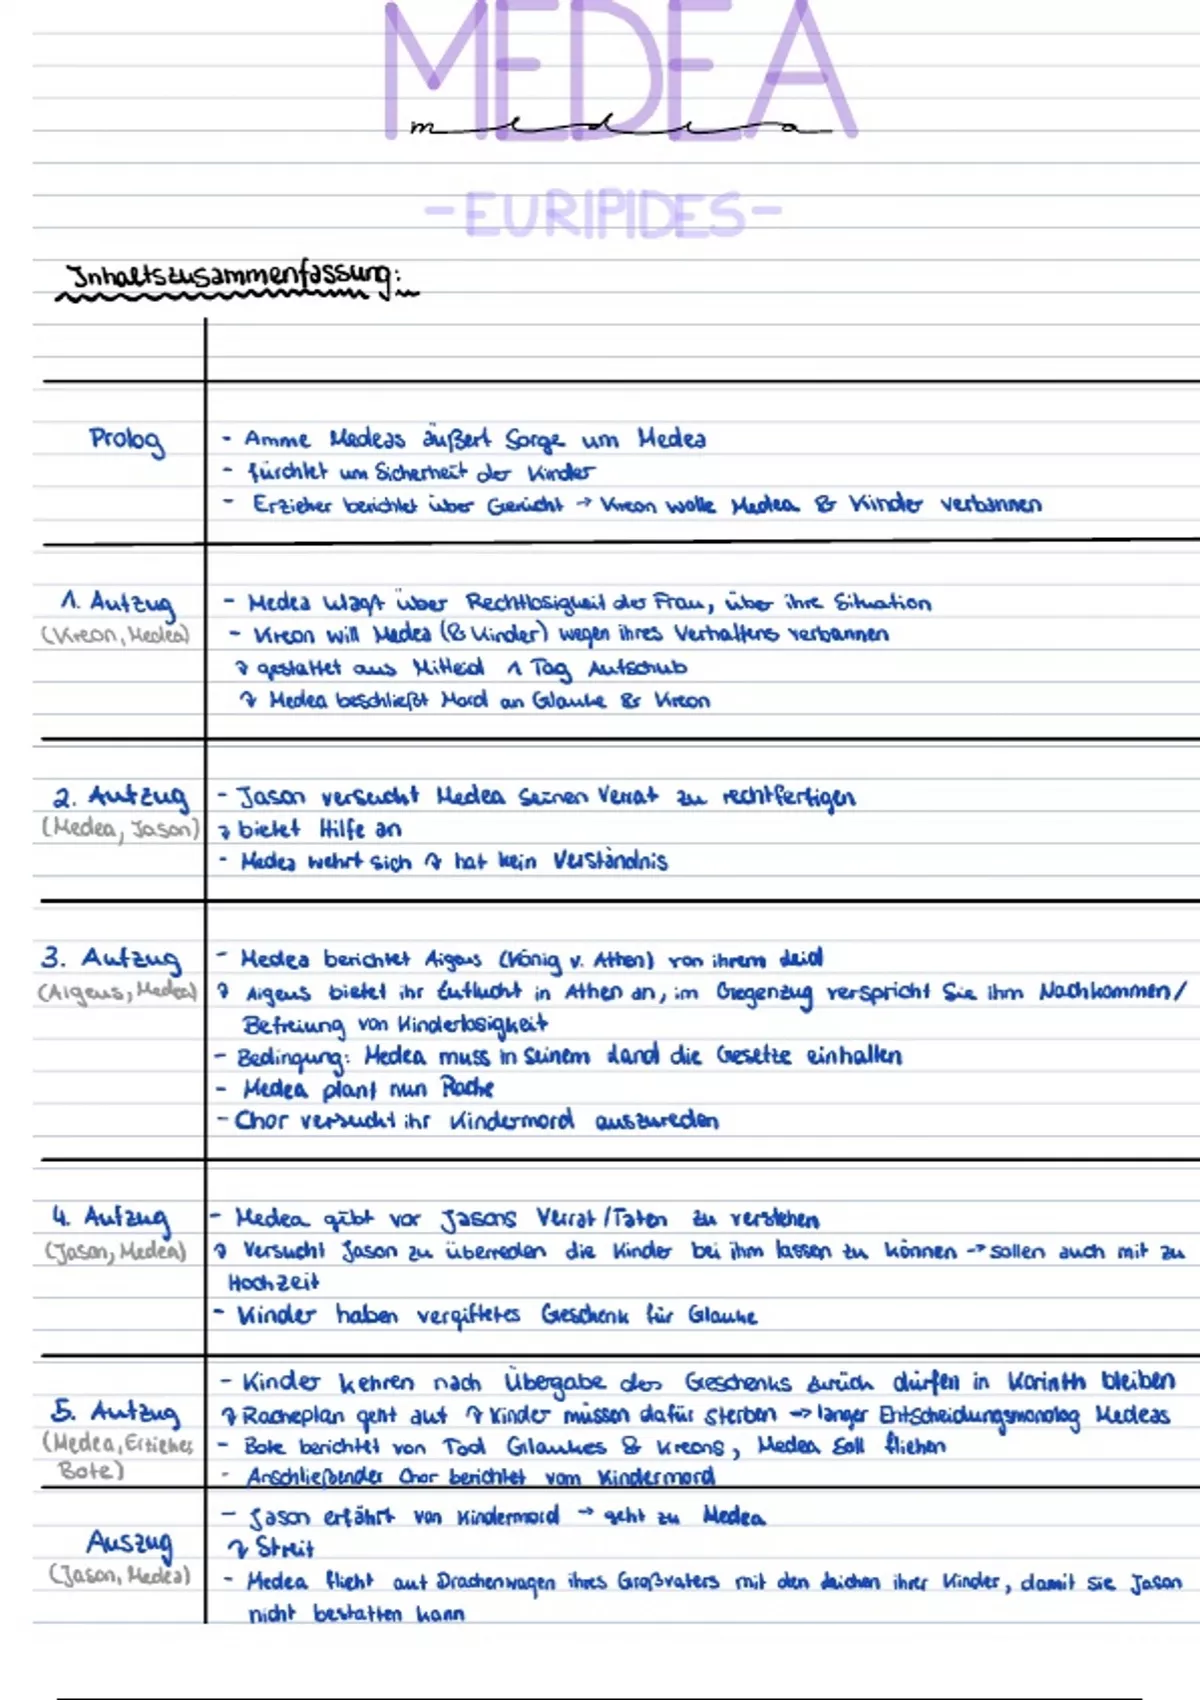 MEDEA
medea
-EURIPIDES-
Inhaltszusammenfassung:
Prolog
- Amme Medeas äußert Sorge um Medea
- fürchtet um Sicherheit der Kinder
- Erzieher berichtet über Gerücht → Kreon wolle Medea & Kinder verbannen
1. Aufzug
(Kreon, Medea)
- Medea klagt über Rechtlosigkeit der Frau, über ihre Situation
- Kreon will Medea (& Kinder) wegen ihres Verhaltens verbannen
↳ gestattet aus Mitleid 1 Tag Aufschub
↳ Medea beschließt Mord an Glauke & Kreon
2. Aufzug
(Medea, Jason)
- Jason versucht Medea seinen Verrat zu rechtfertigen
↳ bietet Hilfe an
- Medea wehrt sich ↳ hat kein Verständnis
3. Aufzug
(Aigeus, Medea)
- Medea berichtet Aigeus (König v. Athen) von ihrem Leid
↳ Aigeus bietet ihr Zuflucht in Athen an, im Gegenzug verspricht sie ihm Nachkommen/
Befreiung von Kinderlosigkeit
- Bedingung: Medea muss in seinem Land die Gesetze einhalten
- Medea plant nun Rache
- Chor versucht ihr Kindermord auszureden
4. Aufzug
(Jason, Medea)
- Medea gibt vor Jasons Verrat/Taten zu verstehen
↳ Versucht Jason zu überreden die Kinder bei ihm lassen zu können → sollen auch mit zu
Hochzeit
- Kinder haben vergiftetes Geschenk für Glauke
5. Aufzug
(Medea, Erzieher,
Bote)
- Kinder kehren nach Übergabe des Geschenks zurück dürfen in Korinth bleiben
↳ Racheplan geht auf ↳ Kinder müssen dafür sterben → langer Entscheidungsmonolog Medeas
- Bote berichtet von Tod Glaukes & Kreons, Medea soll fliehen
- Anschließender Chor berichtet vom Kindermord
Auszug
(Jason, Medea)
- Jason erfährt von Kindermord → geht zu Medea
↳ Streit
- Medea flieht auf Drachenwagen ihres Großvaters mit den Leichen ihrer Kinder, damit sie Jason
nicht bestatten kann